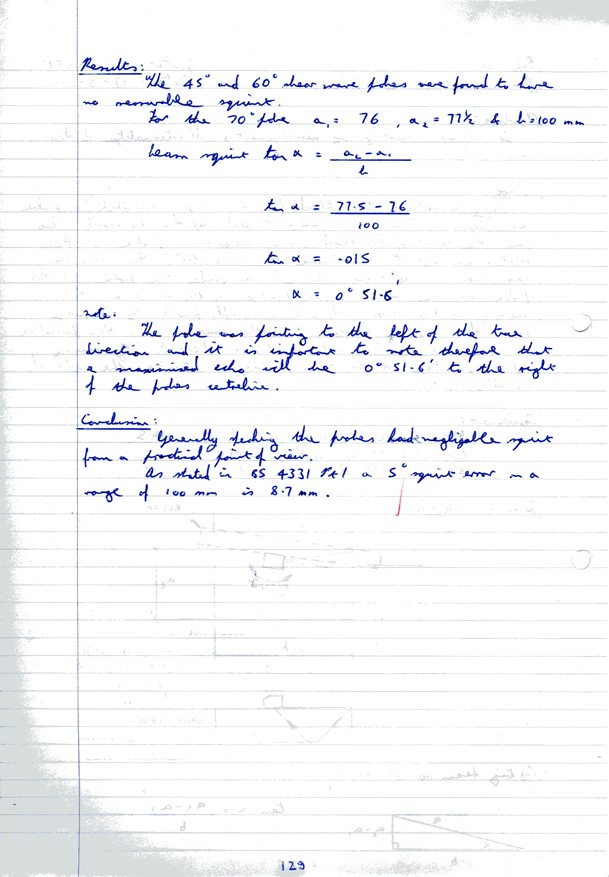 Results:
The 45° and 60° shear wave probes were found to have
no measurable squint.
For the 70° probe a₁ = 76 , a₂ = 77½ & b = 100 mm
beam squint tan α = a₂ - a₁
b
tan α = 77.5 - 76
100
tan α = .015
α = 0° 51.6'
note.
The probe was pointing to the left of the true
direction and it is important to note therefore that
a maximised echo will be 0° 51.6' to the right
of the probes centreline.
Conclusion:
Generally speaking the probes had negligable squint
from a practical point of view.
As stated in BS 4331 Pt 1 a 5° squint error on a
range of 100 mm is 8.7 mm.
129